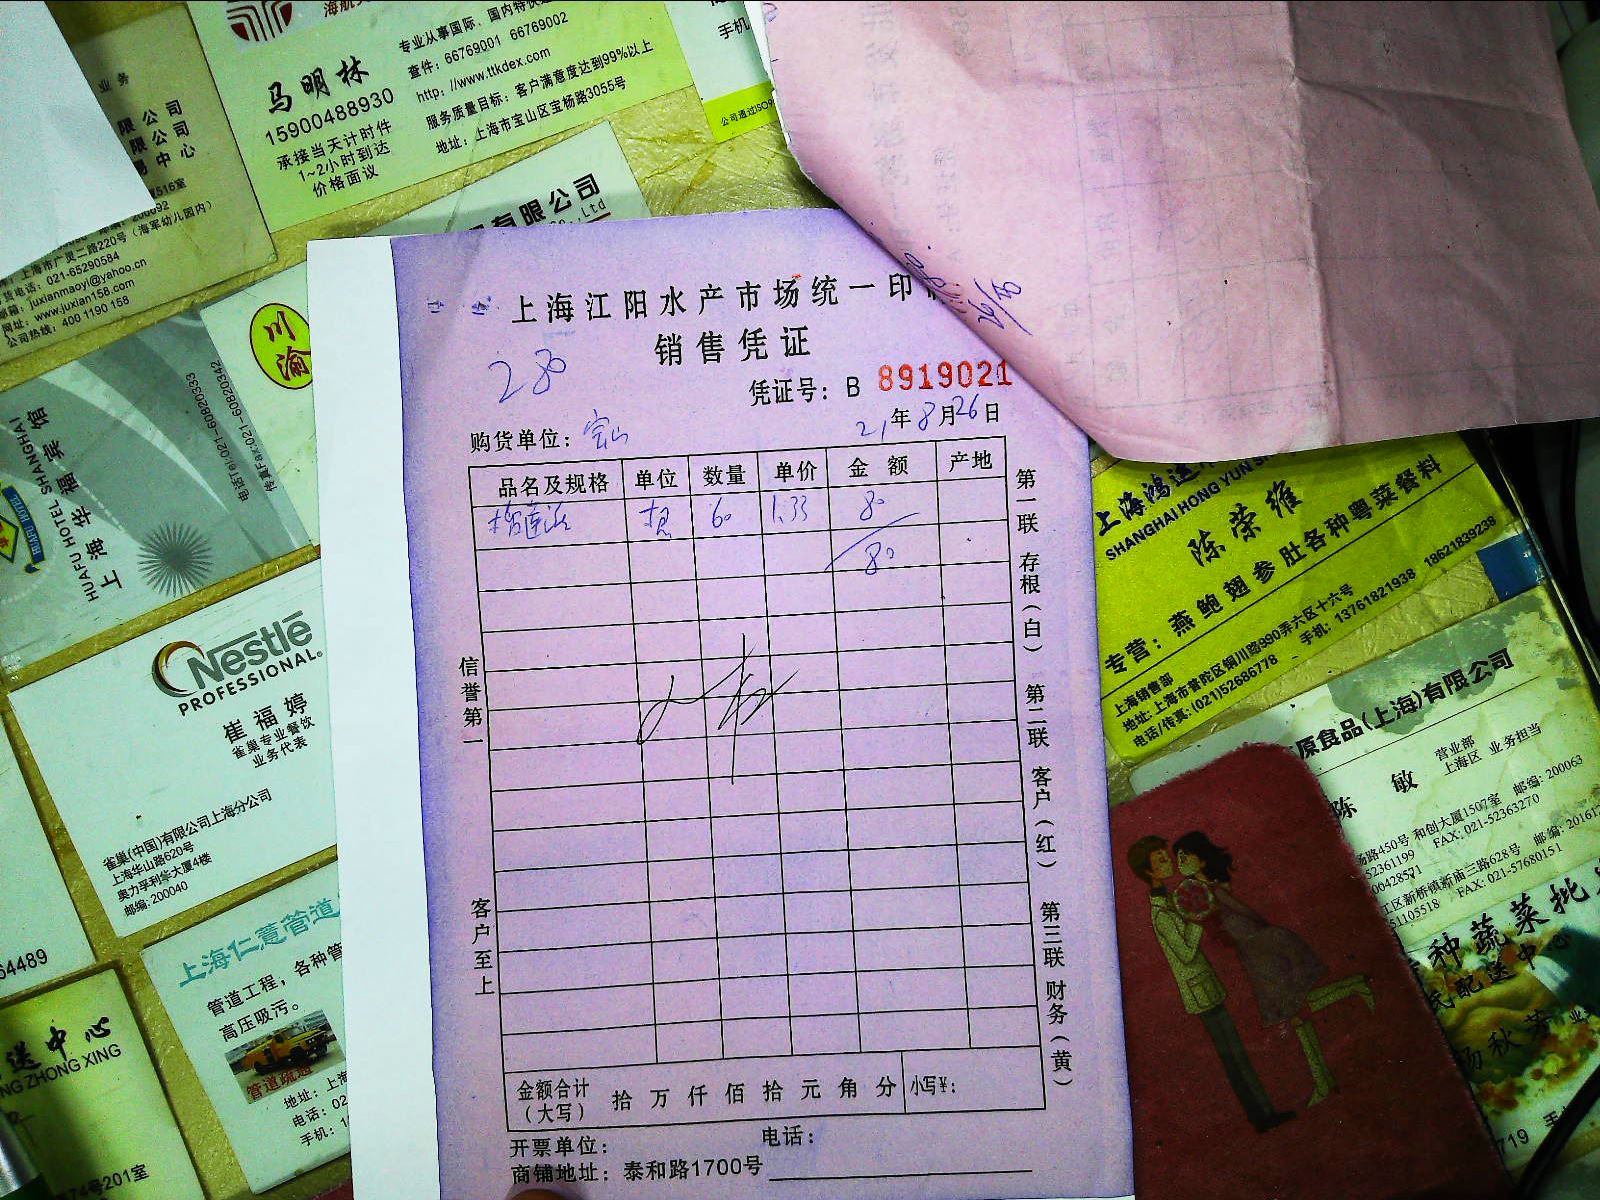 海航天
专业从事国际、国内特快
查件：66769001 66769002
http：//www.ttkdex.com
服务质量目标：客户满意度达到99%以上
地址：上海市宝山区宝杨路3055号
马明林
15900488930
承接当天计时件
1~2小时到达
价格面议
手机
公司通过ISO9
业务
限公司
限公司
易中心
516室
上海市广灵二路220号（海军幼儿园内）
货电话：021-65290584
邮箱：juxianmaoyi@yahoo.cn
网址：www.juxian158.com
公司热线：400 1190 158
有限公司
Co.,Ltd
川渝
电话Tel:021-60820333
传真Fax:021-60820342
HUAFU HOTEL SHANGHAI
上海华福宾馆
HUAFU HOTEL
Nestlé
PROFESSIONAL®
崔福婷
雀巢专业餐饮
业务代表
雀巢(中国)有限公司上海分公司
上海华山路620号
奥力孚利华大厦4楼
邮编: 200040
上海仁薏管道
管道工程，各种管
高压吸污。
管道疏通
地址：上海
电话：02
手机：1
64489
送中心
NG ZHONG XING
74号201室
上海江阳水产市场统一印
销售凭证
280
凭证号：B 8919021
购货单位：宝山
21年8月26日
品名及规格 单位 数量 单价 金额 产地
60 1.33 80
80
信誉第一
客户至上
第一联 存根（白） 第二联 客户（红） 第三联 财务（黄）
金额合计（大写） 拾万仟佰拾元角分 小写¥：
开票单位： 电话：
商铺地址：泰和路1700号
上海鸿运
SHANGHAI HONG YUN SH
陈荣维
专营：燕鲍翅参肚各种粤菜餐料
上海销售部
地址: 上海市普陀区铜川路990弄六区十六号
电话/传真: (021)52686778 手机: 13761821938 18621839238
原食品(上海)有限公司
陈敏
营业部
上海区 业务担当
场路450号 和创大厦1507室 邮编: 200063
52361199 FAX: 021-52363270
00428571
工区新桥镇新南三路628号 邮编: 20161
51105518 FAX: 021-57680151
种蔬菜批
配送中心
杨秋芳
719